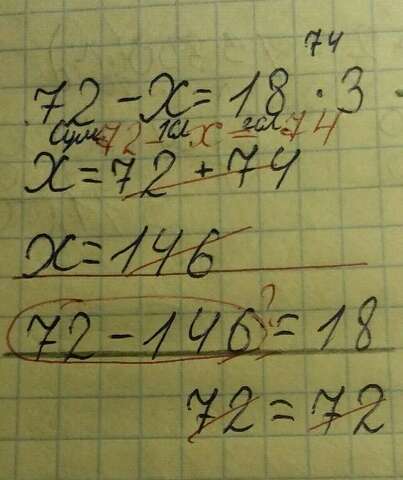 74
72 - x = 18 · 3
72 - x = 74
x = 72 + 74
x = 146
72 - 146 ? = 18
72 = 72